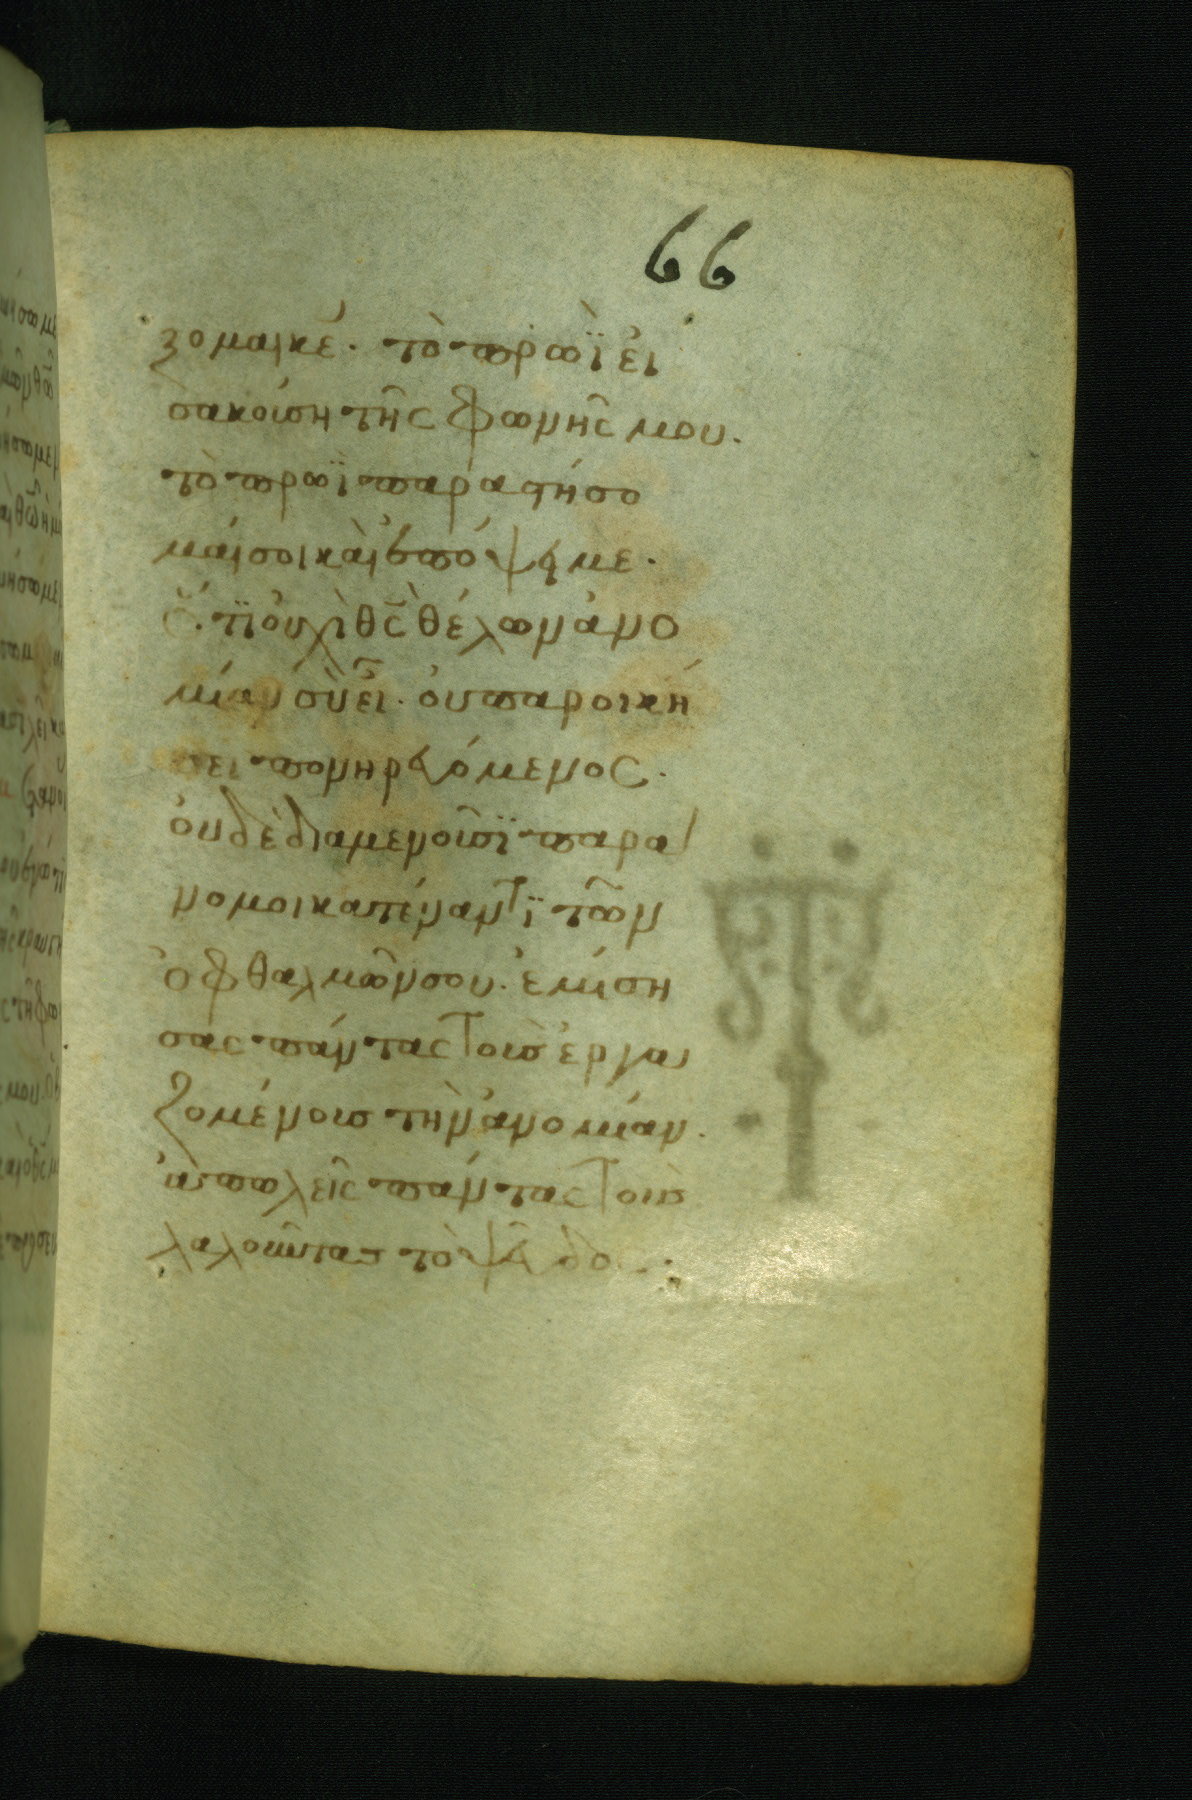 66
ζομαι κέ. τὸ πρωῒ εἰ
σακούση τῆς φωνῆς μου.
τὸ πρωῒ παραστήσο
μαί σοι καὶ ἐπόψη με.
ὅτϊ οὐχὶ θς̄ θέλων ἀνο
μίαν σὺ εἶ. οὐ παροικὴ
σει πονηρευόμενος.
οὐδὲ διαμενοῦσϊ παρα
νομοι κατέναντϊ τῶν
ὀφθαλμῶν σου. ἐμίση
σας πάντας τοὺς ἐργα
ζομένους τὴν ἀνομίαν.
ἀπολεῖς πάντας τοὺς
λαλοῦντας τὸ ψεῦδος.